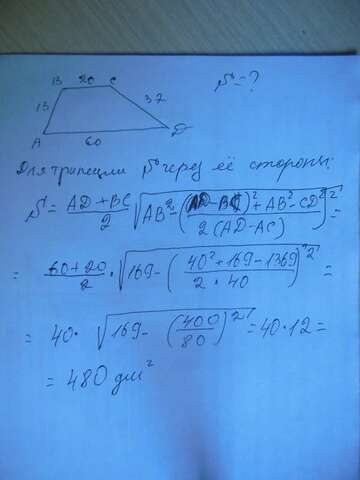 B 20 C
S = ?
13 37
A 60 D
Для трапеции S через её стороны:
S = \frac{AD + BC}{2} \sqrt{AB^2 - \left(\frac{(AD - BC)^2 + AB^2 - CD^2}{2(AD - AC)}\right)^2} =
= \frac{60 + 20}{2} \cdot \sqrt{169 - \left(\frac{40^2 + 169 - 1369}{2 \cdot 40}\right)^2} =
= 40 \cdot \sqrt{169 - \left(\frac{400}{80}\right)^2} = 40 \cdot 12 =
= 480 дм^2